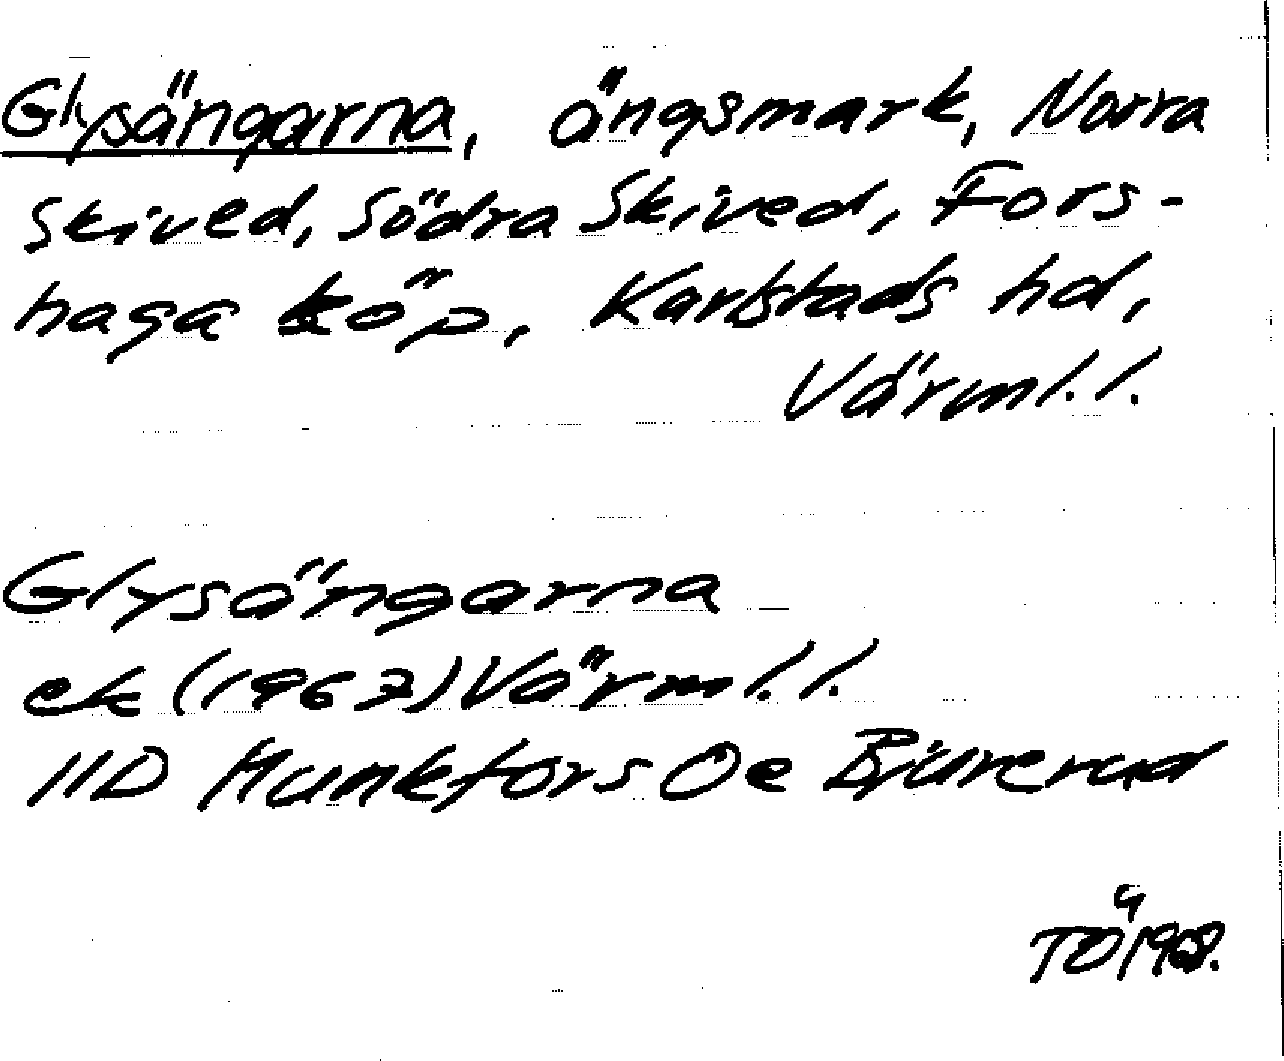 Glysängarna, ängsmark, Norra
Skived, Södra Skived, Fors-
haga köp, Karlstads hd,
Värml. l.
Glysängarna
ek (1967) Värml. l.
11D Munkfors Oe Bjurerud
TÖ 1968.